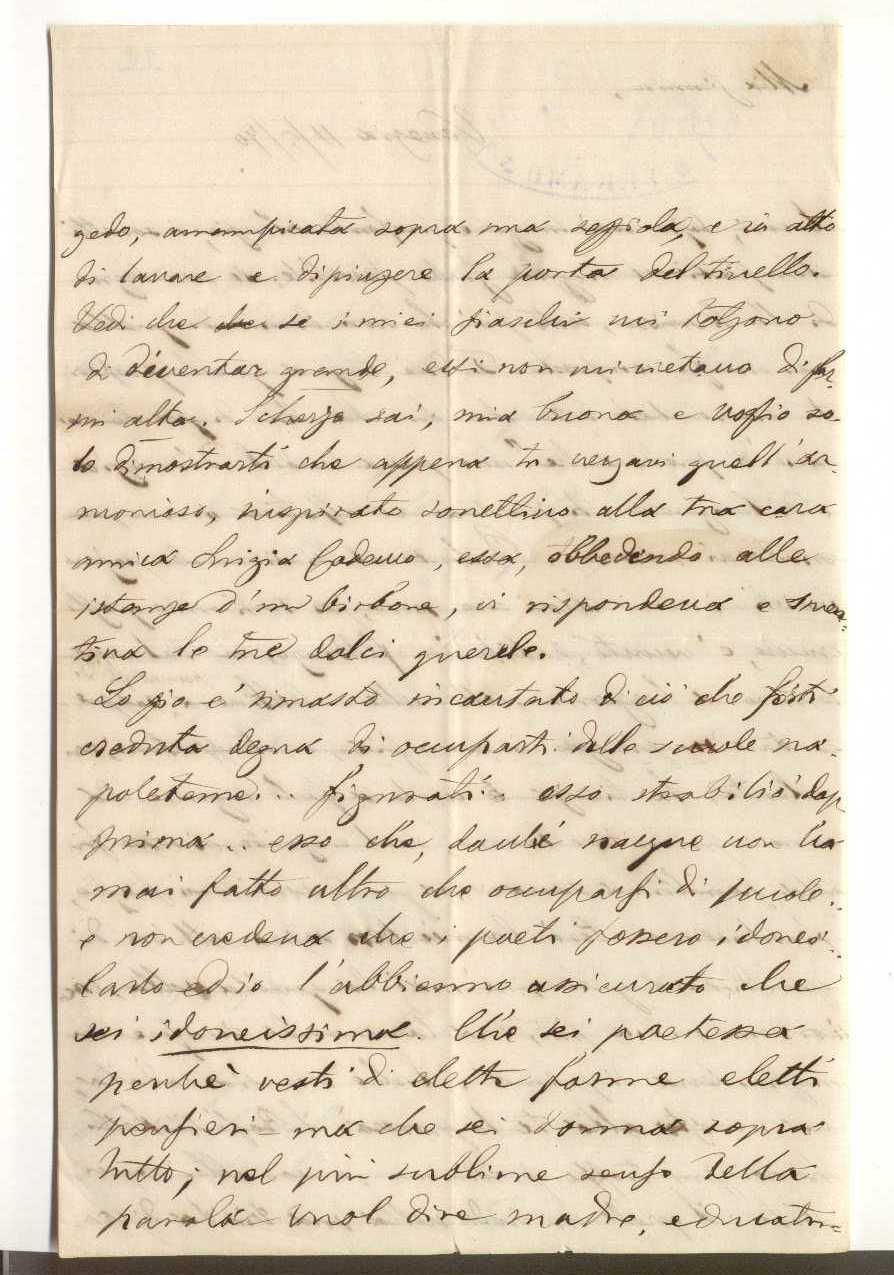 gedo, arrampicata sopra una seggiola, e in atto
di lavare e dipingere la porta del tinello.
Vedi che che se i miei fiaschi mi tolgono
di diventar grande, essi non mi vietano di far-
mi alta. Scherzo sai, mia buona e voglio so-
lo dimostrarti che appena tu vergavi quell'ar-
monioso, inspirato sonettino alla tua cara
amica Luigia Codemo, essa, obbedendo alle
istanze d'un birbone, vi rispondeva e smen-
tiva le tue dolci querele.
Lo zio è rimasto incantato di ciò che fosti
creduta degna di occuparti delle scuole na-
poletane... figurati.. esso strabiliò dap
prima .. esso che, dacché nacque non ha
mai fatto altro che occuparsi di scuole..
e non credeva che i poeti fossero idonei..
Carlo ed io l'abbiamo assicurato che
sei idoneissima. Che sei poetessa
perchè vesti di elette forme eletti
pensieri - ma che sei donna sopra
tutto; nel più sublime senso della
parola vuol dire madre, educatri=